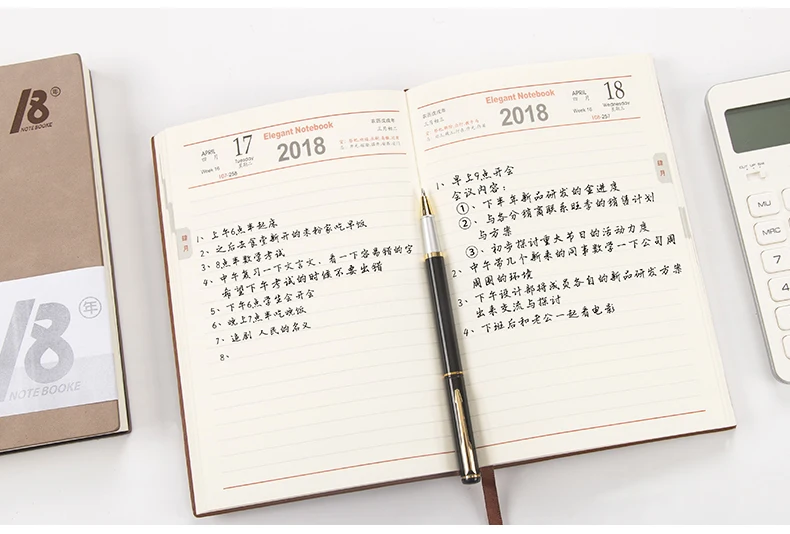 18
年
NOTEBOOKE
18
年
NOTEBOOKE
APRIL
四 月
17
Tuesday
星期二
Week 16
107-258
Elegant Notebook
2018
农历戊戌年
三月初二
肆月
1、上午6点半起床
2、之后去食堂新开的米粉家吃早饭
3、8点半数学考试
4、中午复习一下文言文、看一下容易错的字
希望下午考试的时候不要出错
5、下午6点学生会开会
6、晚上7点半吃晚饭
7、追剧 人民的名义
8、
农历戊戌年
三月初三
Elegant Notebook
2018
APRIL
四 月
18
Wednesday
星期三
Week 16
108-257
肆月
1、早上9点开会
会议内容：
①、下半年新品研发的全进度
②、与各分销商联系旺季的销售计划
与方案
③、初步探讨重大节日的活动力度
2、中午带几个新来的同事教学一下公司周
周围的环境
3、下午设计部将成员各自的新品研发方案
出来交流与探讨
4、下班后和老公一起看电影
MU
MRC
7
4
1
0